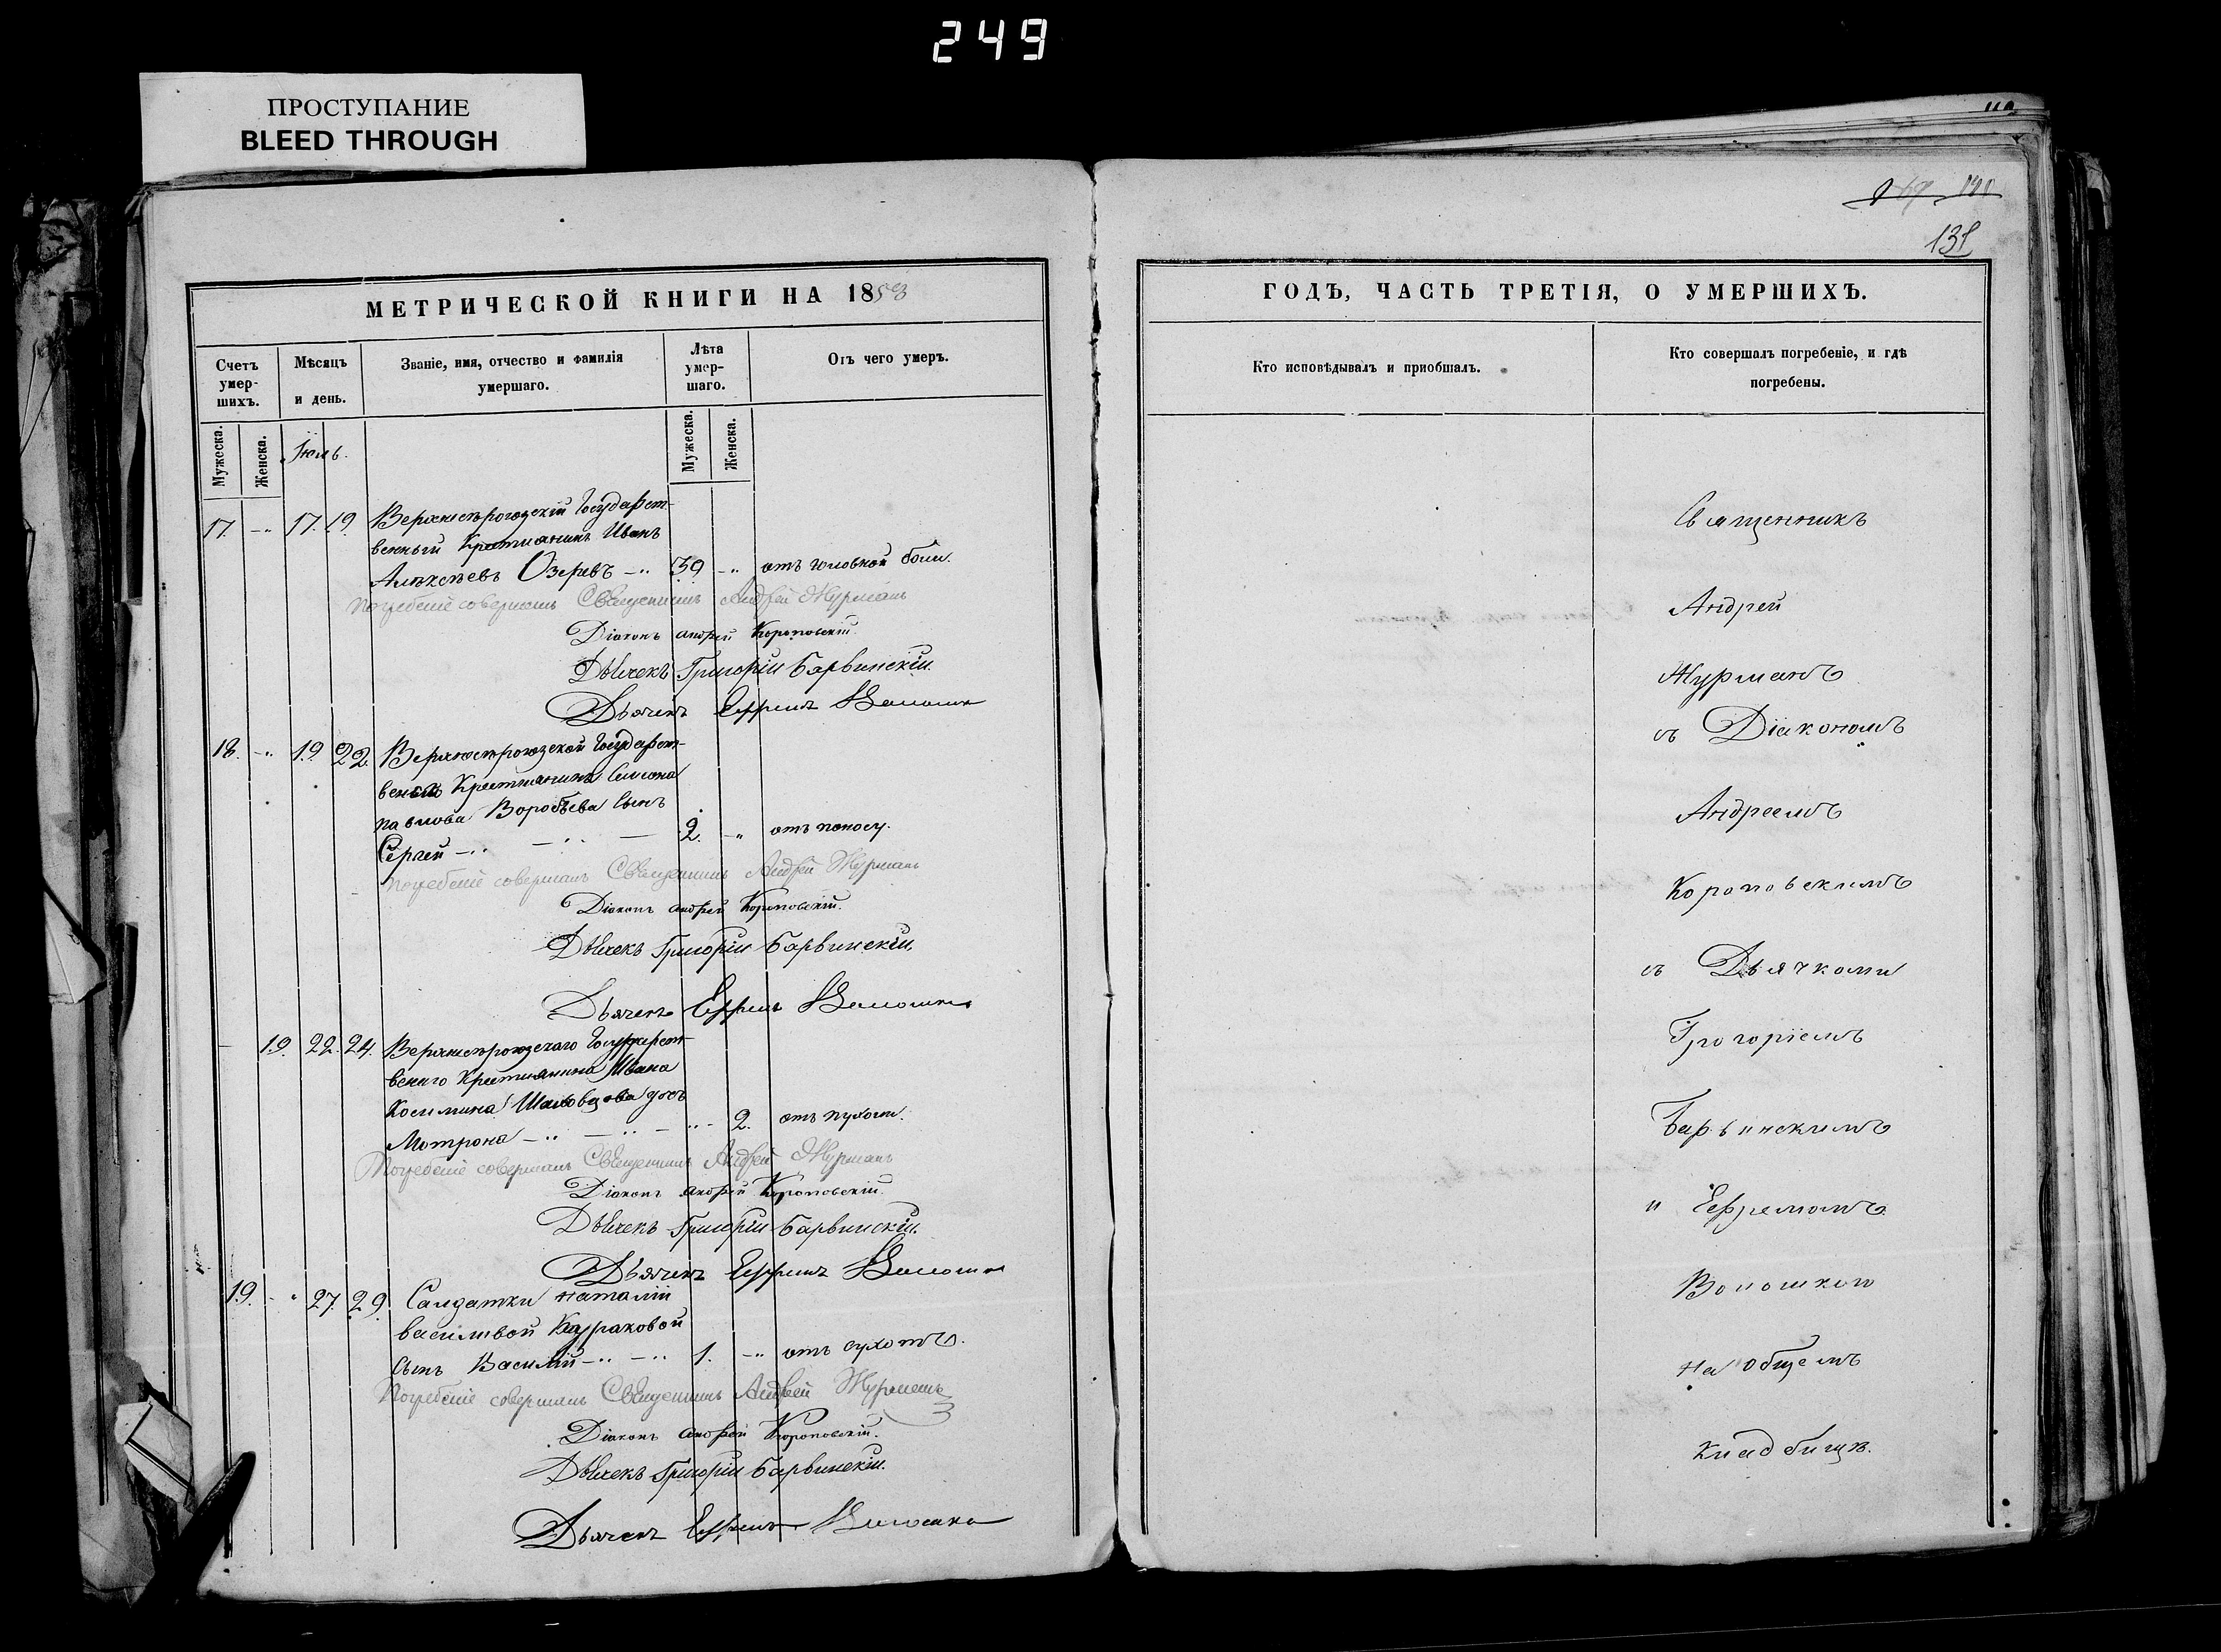 249
ПРОСТУПАНИЕ
BLEED THROUGH
131
МЕТРИЧЕСКОЙ КНИГИ НА 1853
Счетъ умер-шихъ.
Мѣсяцъ и день.
Званіе, имя, отчество и фамилія умершаго.
Лѣта умер-шаго.
Отъ чего умеръ.
Мужеска.
Женска.
Іюль.
Мужеска.
Женска.
17. -„ 17. 19. Верхнерогозскій Государст-
венный Крестианинъ Иванъ
Алексѣевъ Озеровъ -„ 39 -„ отъ головной боли.
Погребеніе совершалъ Священникъ Андрей Журманъ
Діаконъ андрей Короповскій.
Дьячекъ Григорій Барвинскій.
Дьячекъ Ефремъ Волошка
18. -„ 19. 22. Государст-
Крестианина Симона
павлова Воробьева Сынъ
Сергей -„ -„ — 2. -„ отъ поносу.
Погребеніе совершалъ Священникъ Андрей Журманъ
Діаконъ андрей Короповскій.
Дьячекъ Григорій Барвинскій.
Дьячекъ Ефремъ Волошка
— 19. 22. 24. Государст-
Крестианина Ивана
Косьмина дочь
Мотрона -„ -„ - „- 2. отъ
Погребеніе совершалъ Священникъ Андрей Журманъ
Діаконъ андрей Короповскій.
Дьячекъ Григорій Барвинскій.
Дьячекъ Ефремъ Волошка
19. -„ 27. 29. Салдатки наталіи
васильвой Кураковой
Сынъ Василій -„ -„ 1. -„ отъ сухотъ.
Погребеніе совершалъ Священникъ Андрей Журманъ
Діаконъ андрей Короповскій.
Дьячекъ Григорій Барвинскій.
Дьячекъ Ефремъ Волошка
ГОДЪ, ЧАСТЬ ТРЕТІЯ, О УМЕРШИХЪ.
Кто исповѣдывалъ и приобщалъ.
Кто совершалъ погребеніе, и гдѣ
погребены.
Священникъ
Андрей
Журманъ
съ Діакономъ
Андреемъ
Короповскимъ
съ Дьячкоми
Григоріемъ
Барвинскимъ
и Ефремомъ
Волошкою
на общемъ
Кладбищѣ.